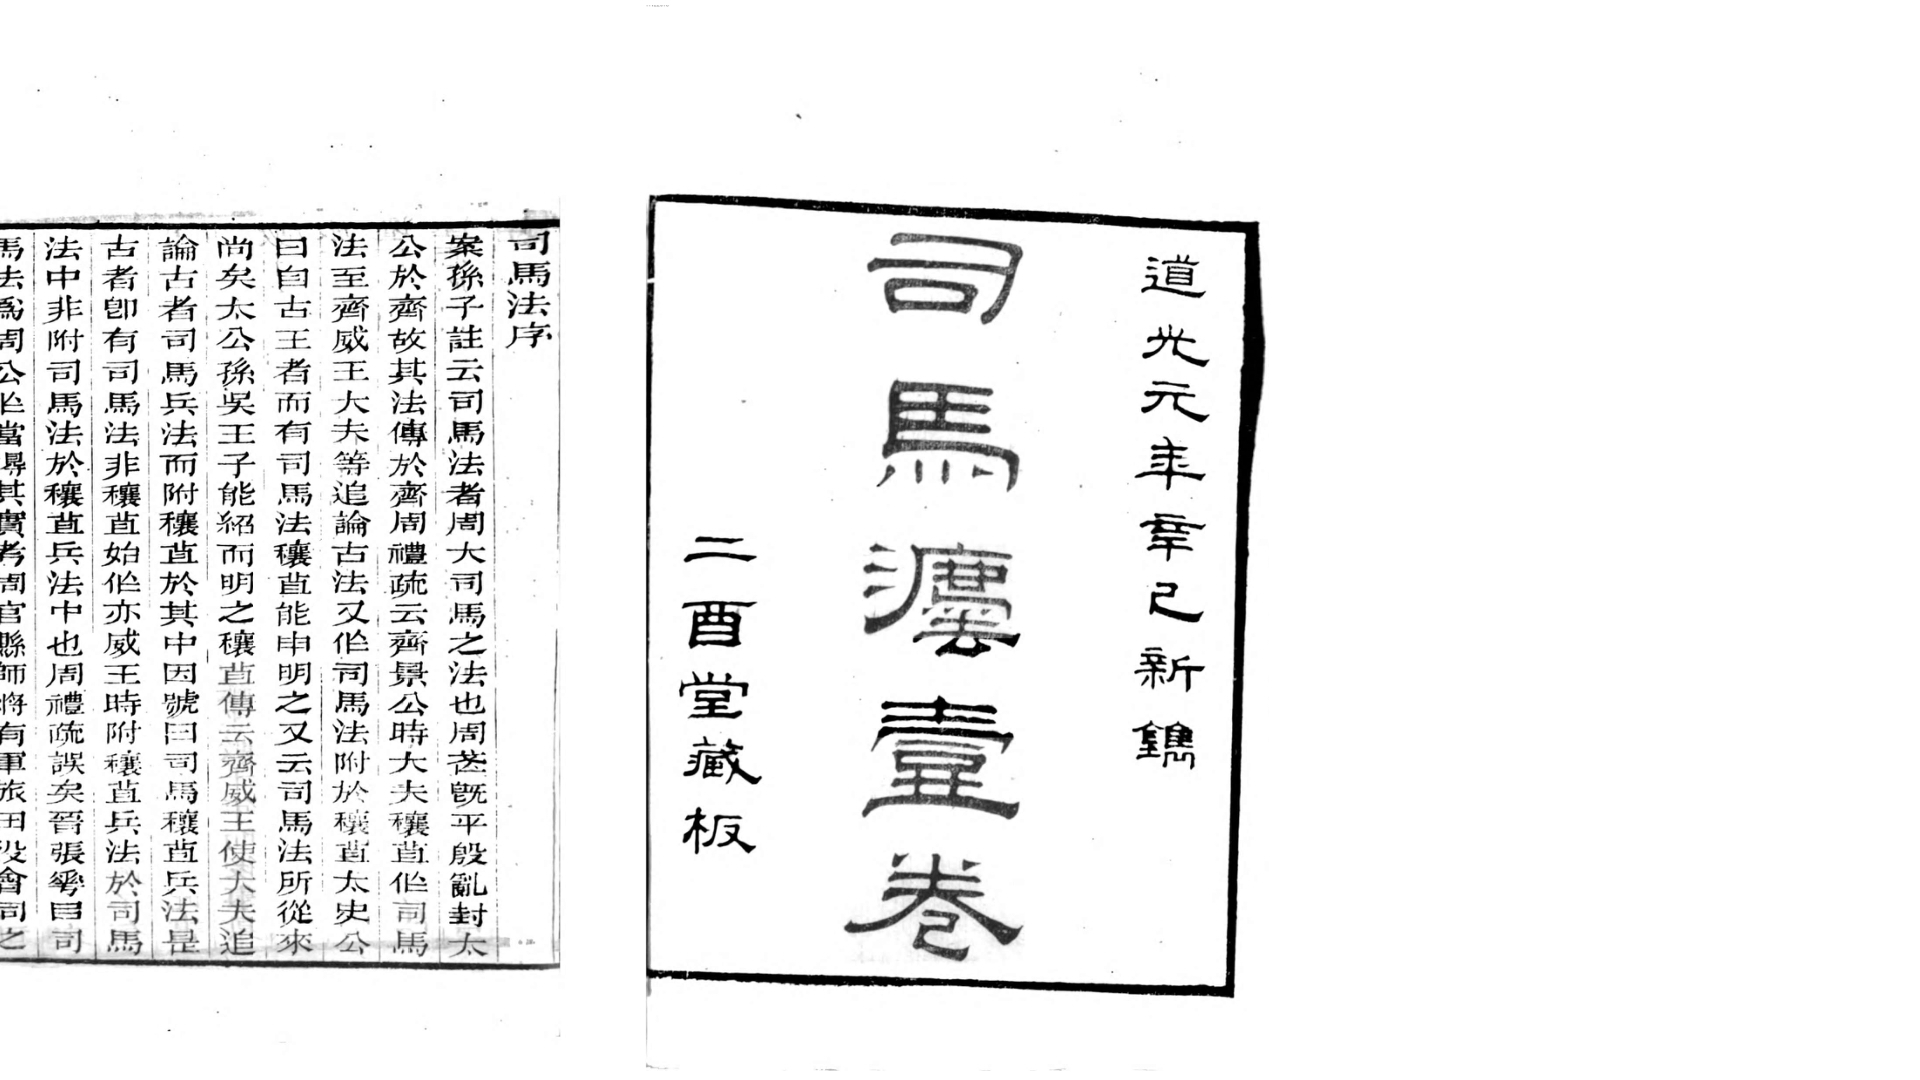 道光元年辛巳新鐫
司馬灋壹卷
二酉堂藏板
司馬法序
案孫子註云司馬法者周大司馬之法也周旣平殷亂封太
公於齊故其法傳於齊周禮疏云齊景公時大夫穰苴作司馬
法至齊威王大夫等追論古法又作司馬法附於穰苴太史公
曰自古王者而有司馬法穰苴能申明之又云司馬法所從來
尚矣太公孫吳王子能紹而明之穰苴傳云齊威王使大夫追
論古者司馬兵法而附穰苴於其中因號曰司馬穰苴兵法是
古者卽有司馬法非穰苴始作亦威王時附穰苴兵法於司馬
法中非附司馬法於穰苴兵法中也周禮疏誤矣晉張華曰司
馬法爲周公作當得其實考周官縣師將有軍旅田役會同之